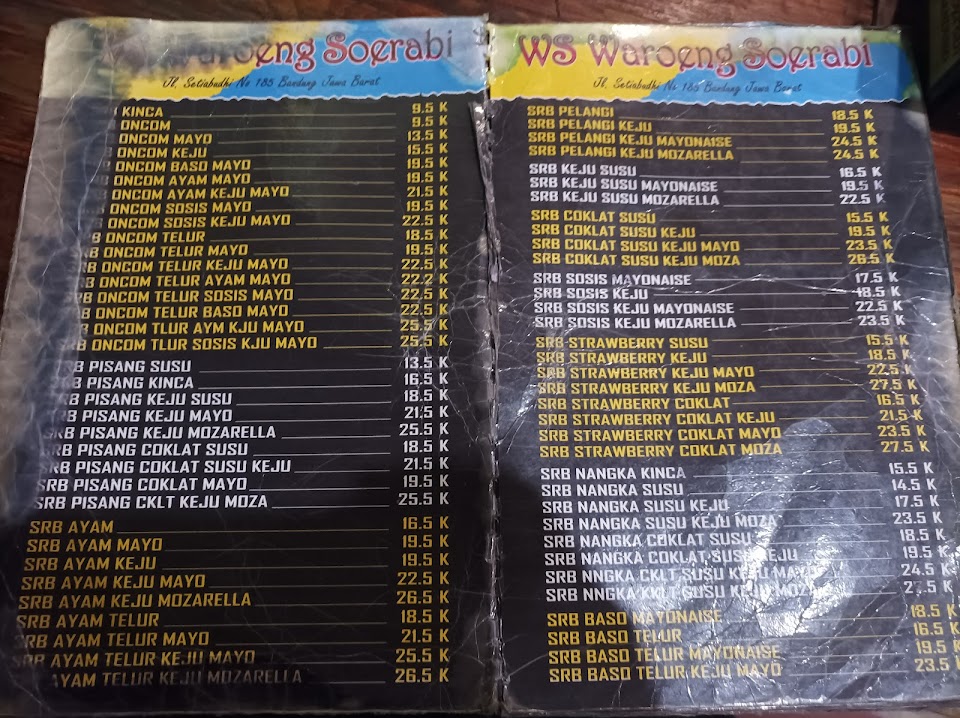 Waroeng Soerabi
Jl. Setiabudhi No 185 Bandung Jawa Barat
KINCA 9.5 K
ONCOM 9.5 K
ONCOM MAYO 13.5 K
ONCOM KEJU 15.5 K
ONCOM BASO MAYO 19.5 K
ONCOM AYAM MAYO 19.5 K
ONCOM AYAM KEJU MAYO 21.5 K
ONCOM SOSIS MAYO 19.5 K
ONCOM SOSIS KEJU MAYO 22.5 K
ONCOM TELUR 18.5 K
SRB ONCOM TELUR MAYO 19.5 K
SRB ONCOM TELUR KEJU MAYO 22.5 K
SRB ONCOM TELUR AYAM MAYO 22.2 K
SRB ONCOM TELUR SOSIS MAYO 22.5 K
SRB ONCOM TELUR BASO MAYO 22.5 K
SRB ONCOM TLUR AYM KJU MAYO 25.5 K
SRB ONCOM TLUR SOSIS KJU MAYO 25.5 K
SRB PISANG SUSU 13.5 K
SRB PISANG KINCA 16.5 K
SRB PISANG KEJU SUSU 18.5 K
SRB PISANG KEJU MAYO 21.5 K
SRB PISANG KEJU MOZARELLA 25.5 K
SRB PISANG COKLAT SUSU 18.5 K
SRB PISANG COKLAT SUSU KEJU 21.5 K
SRB PISANG COKLAT MAYO 19.5 K
SRB PISANG CKLT KEJU MOZA 25.5 K
SRB AYAM 16.5 K
SRB AYAM MAYO 19.5 K
SRB AYAM KEJU 19.5 K
SRB AYAM KEJU MAYO 22.5 K
SRB AYAM KEJU MOZARELLA 26.5 K
SRB AYAM TELUR 18.5 K
SRB AYAM TELUR MAYO 21.5 K
SRB AYAM TELUR KEJU MAYO 25.5 K
AYAM TELUR KEJU MOZARELLA 26.5 K
WS Waroeng Soerabi
Jl. Setiabudhi No 185 Bandung Jawa Barat
SRB PELANGI 18.5 K
SRB PELANGI KEJU 19.5 K
SRB PELANGI KEJU MAYONAISE 24.5 K
SRB PELANGI KEJU MOZARELLA 24.5 K
SRB KEJU SUSU 16.5 K
SRB KEJU SUSU MAYONAISE 19.5 K
SRB KEJU SUSU MOZARELLA 22.5 K
SRB COKLAT SUSU 15.5 K
SRB COKLAT SUSU KEJU 19.5 K
SRB COKLAT SUSU KEJU MAYO 23.5 K
SRB COKLAT SUSU KEJU MOZA 26.5 K
SRB SOSIS MAYONAISE 17.5 K
SRB SOSIS KEJU 18.5 K
SRB SOSIS KEJU MAYONAISE 22.5 K
SRB SOSIS KEJU MOZARELLA 23.5 K
SRB STRAWBERRY SUSU 15.5 K
SRB STRAWBERRY KEJU 18.5 K
SRB STRAWBERRY KEJU MAYO 22.5 K
SRB STRAWBERRY KEJU MOZA 27.5 K
SRB STRAWBERRY COKLAT 16.5 K
SRB STRAWBERRY COKLAT KEJU 21.5 K
SRB STRAWBERRY COKLAT MAYO 23.5 K
SRB STRAWBERRY COKLAT MOZA 27.5 K
SRB NANGKA KINCA 15.5 K
SRB NANGKA SUSU 14.5 K
SRB NANGKA SUSU KEJU 17.5 K
SRB NANGKA SUSU KEJU MOZA 23.5 K
SRB NANGKA COKLAT SUSU 18.5 K
SRB NANGKA COKLAT SUSU KEJU 19.5 K
SRB NNGKA CKLT SUSU KEJU MAYO 24.5 K
SRB NNGKA KKLT SUSU KEJU MOZA 27.5 K
SRB BASO MAYONAISE 18.5 K
SRB BASO TELUR 16.5 K
SRB BASO TELUR MAYONAISE 19.5 K
SRB BASO TELUR KEJU MAYO 23.5 K